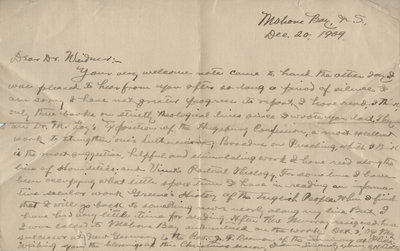 Mahone Bay, N.S,
Dec. 20, 1909
Dear Dr. Weidner:-
Your very welcome note came to hand the other day. I
was pleased to hear from you after so long a period of silence. I
am sorry I have not greater progress to report. I have read,
only three books on strictly theological lines since I wrote you last. They
are Dr. M. Loy's Exposition of the Augsburg Confession, a most excellent
work to strengthen one's Lutheranism; Broadus on Preaching, which I find
is the most suggestive, helpful and stimulating work I have read along the
line of Homiletics; and Vinet's Pastoral Theology. For some time I have
been occupying what little spare time I have in reading an
secular work Green's History of the English People. When I finish
that I will go back to something on theology again.
have had very little time for reading. After
I was called to Mahone Bay and moved on the work Oct. 3, '09. My
successor at
Wishing you the blessings of this Christmas Season, I am sincerely yours,